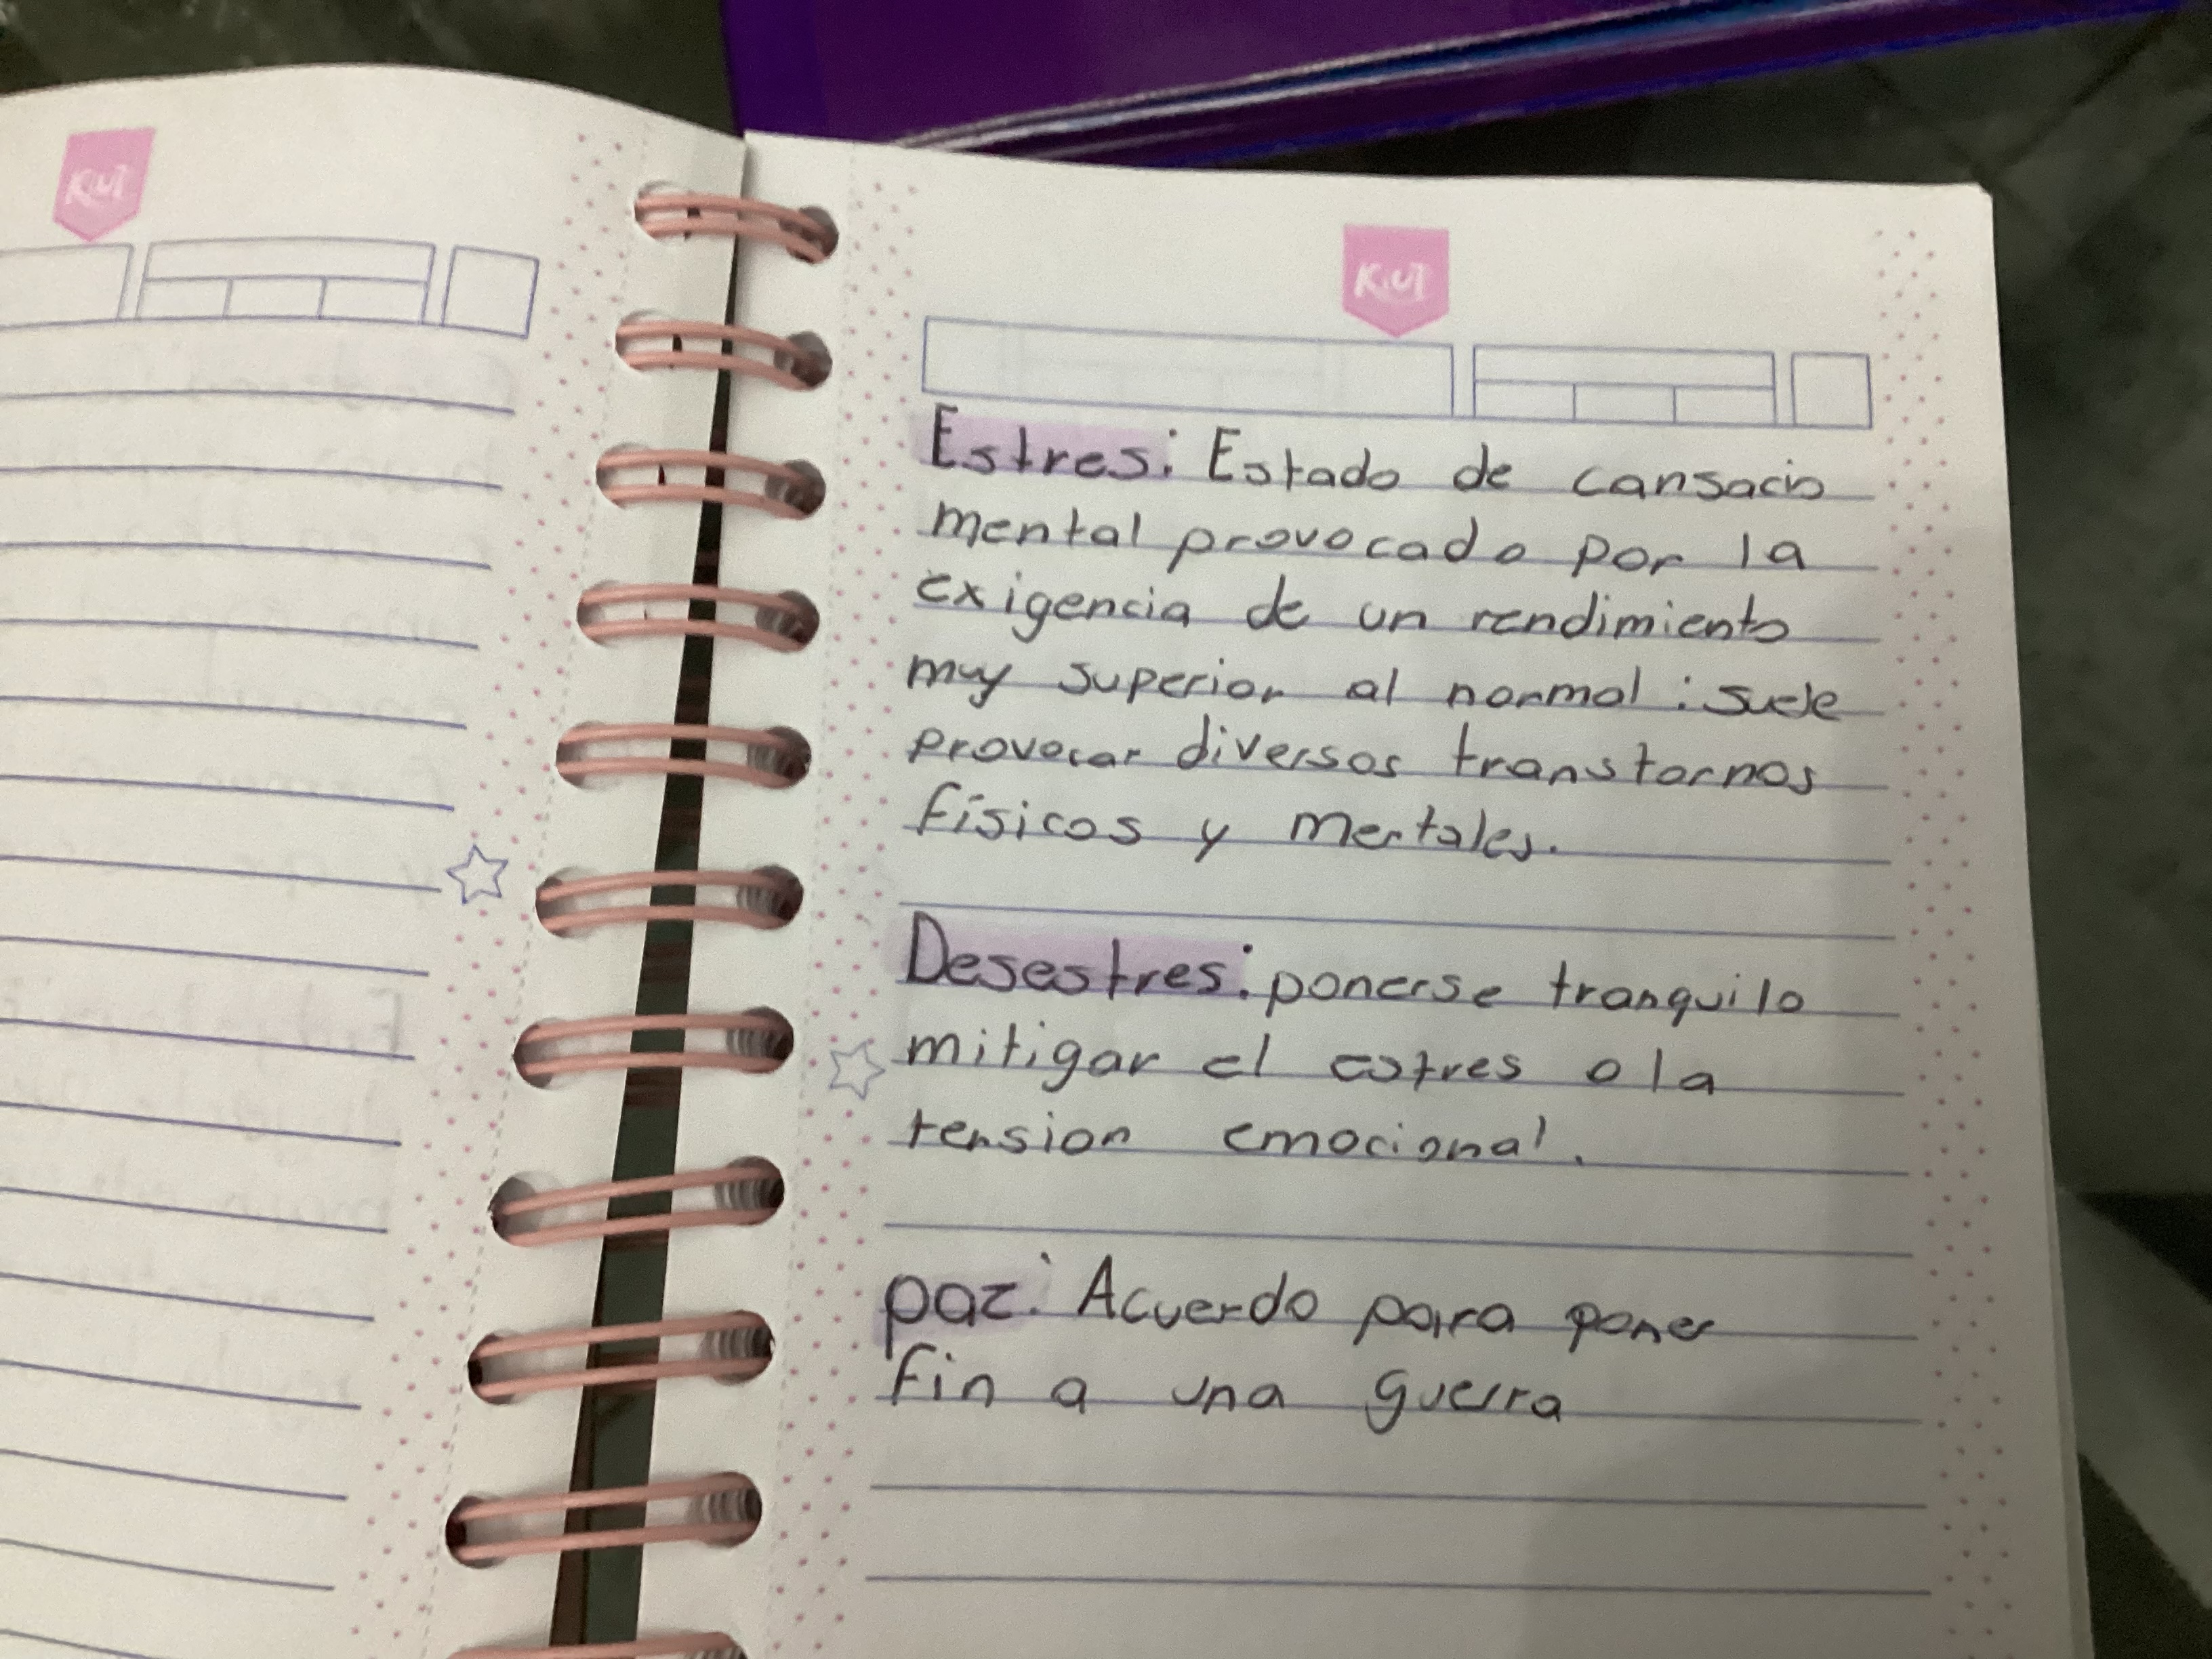 Kut
Kut
Estres: Estado de cansacio
mental provocado por la
exigencia de un rendimiento
muy superior al normal : suele
provocar diversos transtornos
físicos y mentales.
Desestres: ponerse tranquilo
mitigar el estres o la
tension emocional.
paz: Acuerdo para poner
fin a una guerra